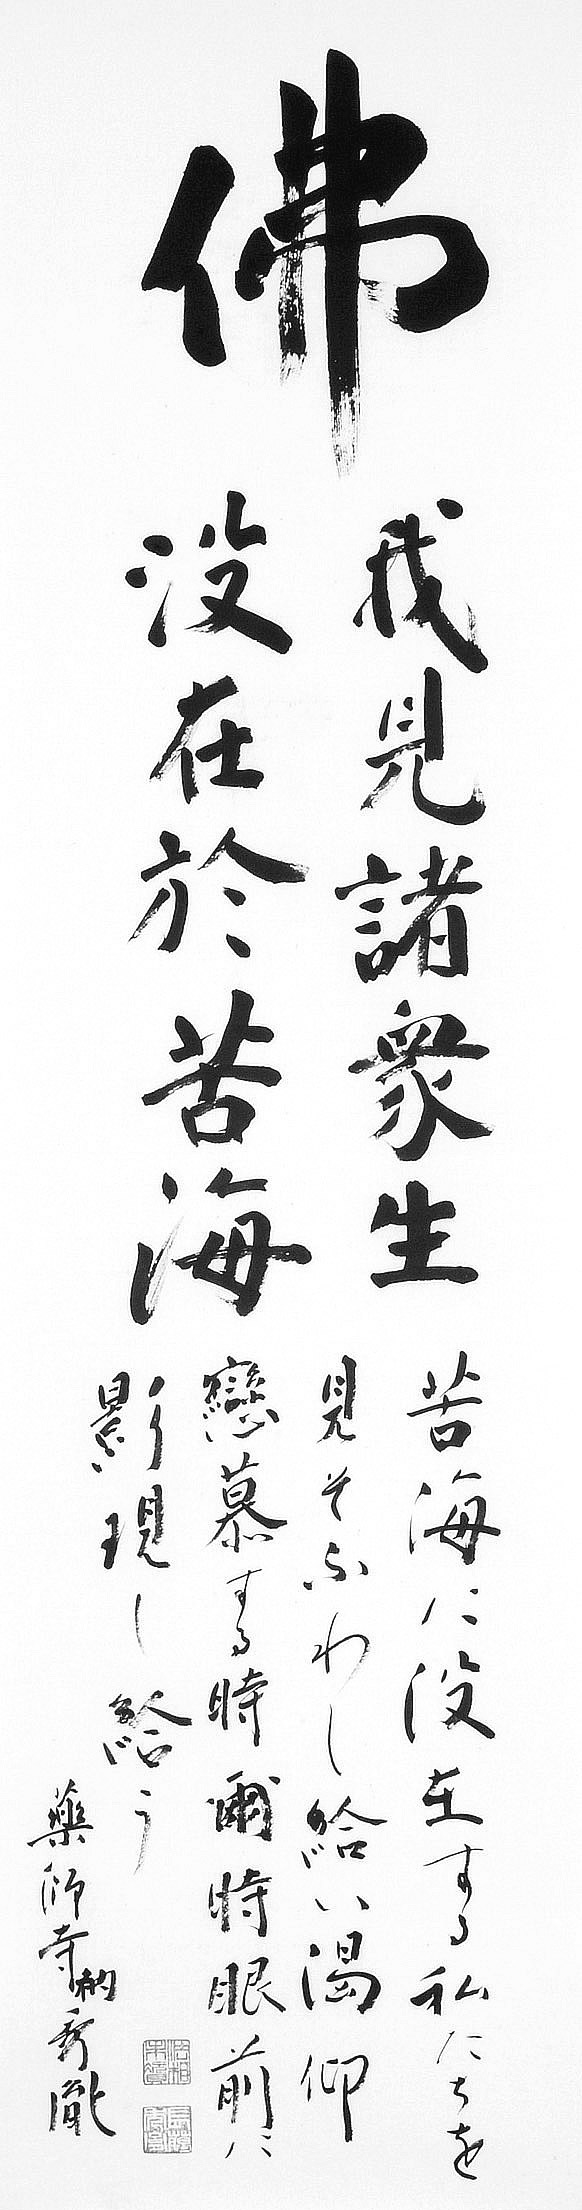 佛
我見諸衆生
没在於苦海
苦海に没在する私たちを
見そなわし給い渇仰
戀慕する時爾時眼前に
影現し給う
藥師寺衲秀胤